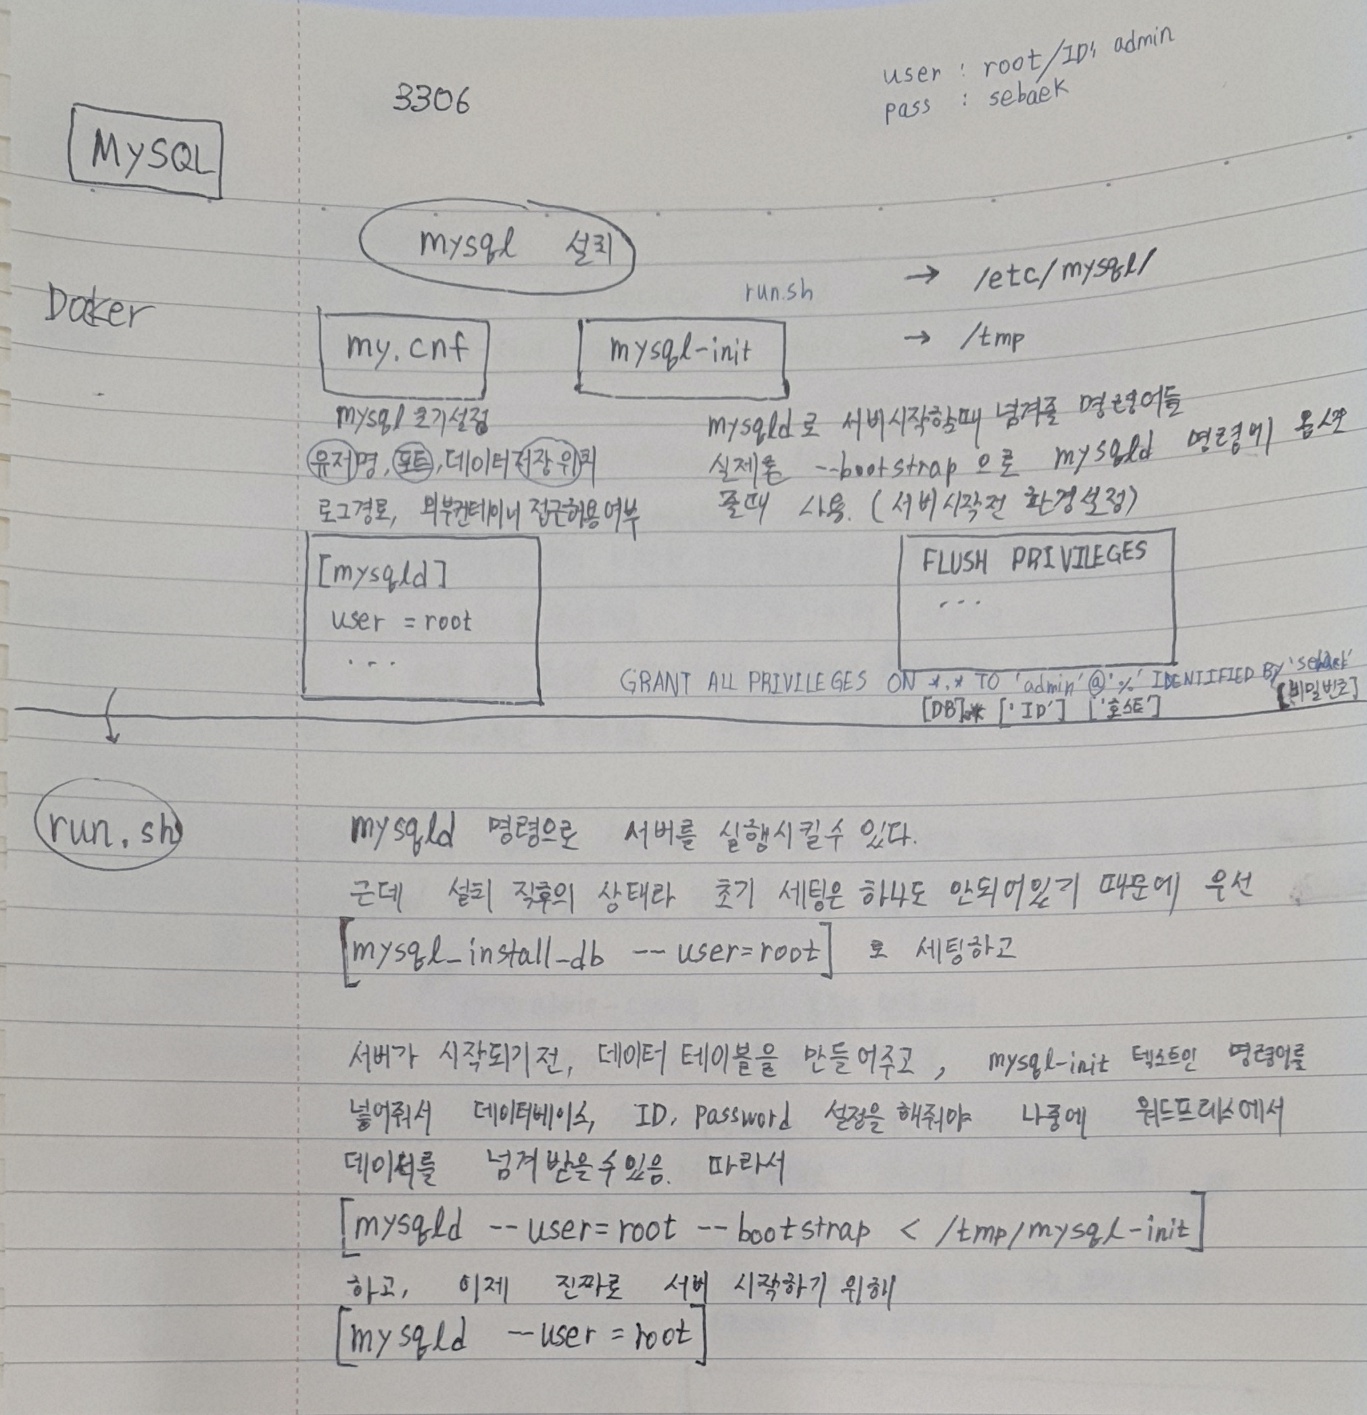 user : root/ID: admin
pass : sebaek
3306
MySQL
mysql 설치
Docker
run.sh
→ /etc/mysql/
my.cnf
mysql-init
→ /tmp
mysql 초기설정
유저명, 포트, 데이터저장위치
로그경로, 외부컨테이너 접근허용여부
mysqld로 서버시작할때 넘겨줄 명령어들
실제론 --bootstrap 으로 mysqld 명령에 옵션
줄때 사용. (서버시작전 환경설정)
[mysqld]
user = root
...
FLUSH PRIVILEGES
...
GRANT ALL PRIVILEGES ON *.* TO 'admin'@'%' IDENTIFIED BY 'sebaek'
[DB].* ['ID'] ['호스트'] [비밀번호]
run.sh
mysqld 명령으로 서버를 실행시킬수 있다.
근데 설치 직후의 상태라 초기 세팅은 하나도 안되어있기 때문에 우선
[mysql_install_db --user=root] 로 세팅하고
서버가 시작되기전, 데이터 테이블을 만들어주고, mysql-init 텍스트인 명령어를
넣어줘서 데이터베이스, ID, password 설정을 해줘야 나중에 워드프레스에서
데이터를 넘겨받을수있음. 따라서
[mysqld --user=root --bootstrap < /tmp/mysql-init]
하고, 이제 진짜로 서버 시작하기 위해
[mysqld --user=root]